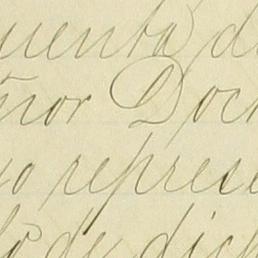 uenta d
ñor Doc
o represe
de dich